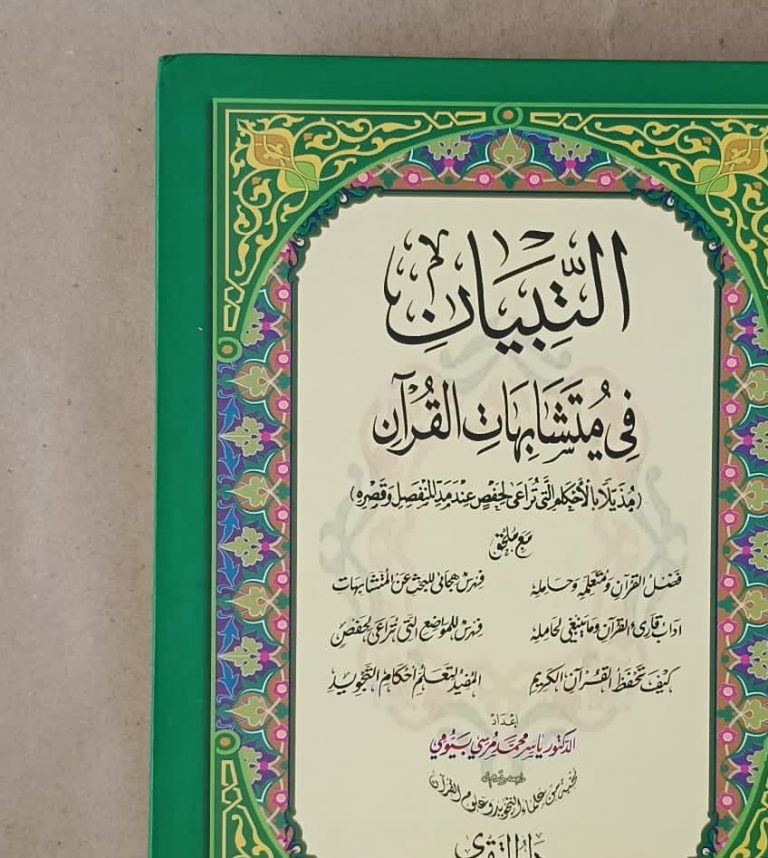 التِّبْيَانِ
فِي مُتَشَابِهَاتِ القُرْآنِ
(مُذَيَّلًا بالأحكام التي تُراعى لحفص عند مد المنفصل وقصره)
مَع مُلحَق
فضل القرآن ومُتعلمه وحامله
فهرس هجائي للبحث عن المتشابهات
آداب قارئ القرآن وما ينبغي لحامله
فهرس للمواضع التي تراعى لحفص
كيف تحفظ القرآن الكريم
المفيد لتعلم أحكام التجويد
إعداد
الدكتور ياسر محمد مرسي بيومي
نخبة من علماء التجويد وعلوم القرآن
دار التقوى